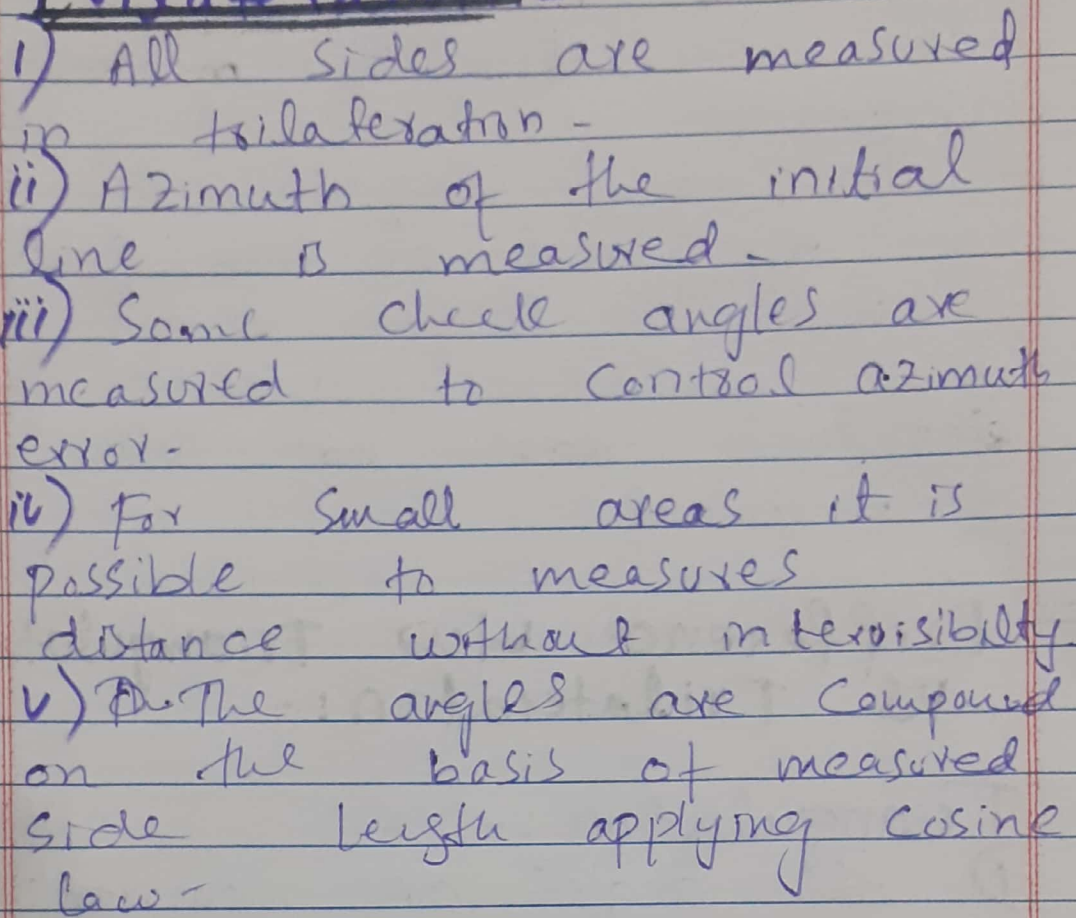 i) All sides are measured
in trilateration -
ii) Azimuth of the initial
line is measured.
iii) Some check angles are
measured to control azimuth
error -
iv) For small areas it is
possible to measures
distance without intervisibilty
v) The angles are compound
on the basis of measured
side length applying cosine
law -